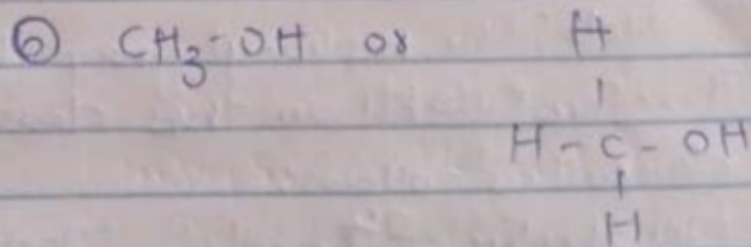 ⑥ CH₃-OH or H
|
H-C-OH
|
H